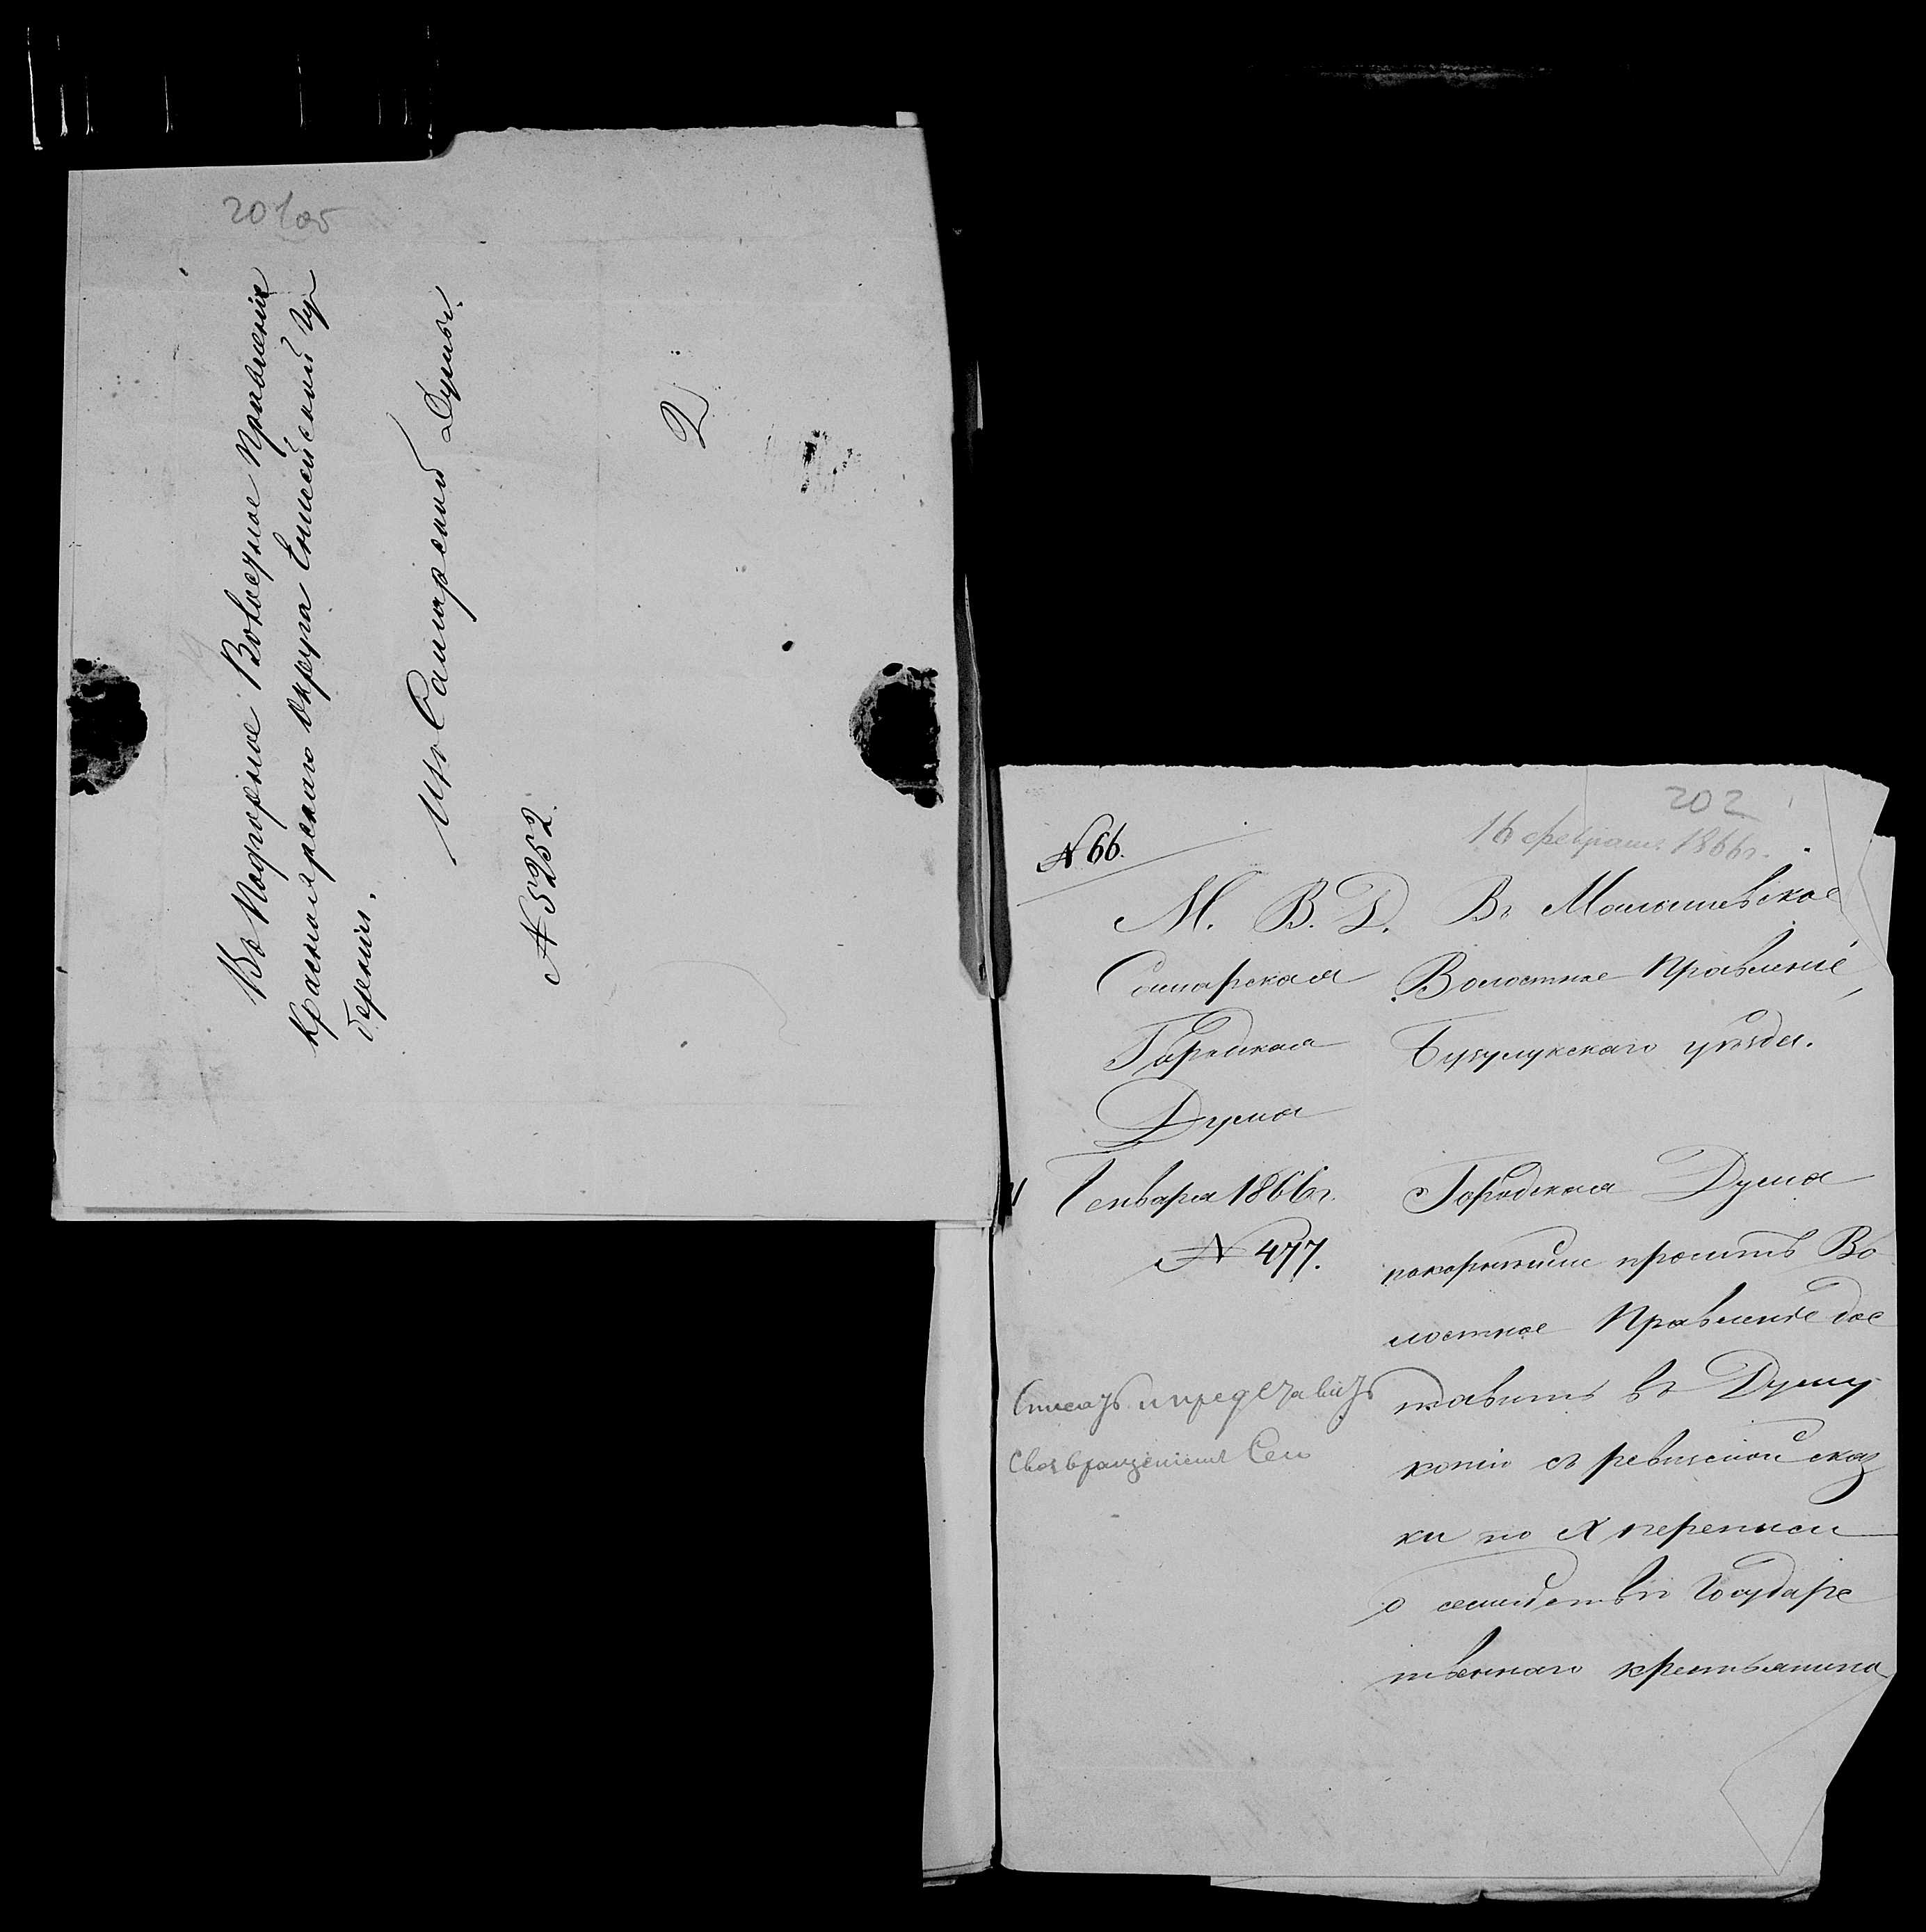 201 об
Въ Подгорное Волостное Правленіе
Красноярскаго округа Енисейской Гу
берніи.
Изъ Самарской Думы.
№ 5252.
2
202
16 февраля 1866 г.
№ 66.
М. В. Д.
Самарская
Городская
Дума
Генваря 1866 г.
№ 477.
Списать и представить
съ возвращеніемъ сего
Въ Малышевское
Волостное Правленіе,
Бузулукскаго уѣзда.
Городская Дума
покорнѣйше проситъ Во
лостное Правленіе дос
тавить въ Думу
копію съ ревизской сказ
ки по X переписи
о семействѣ Государс
твеннаго крестьянина